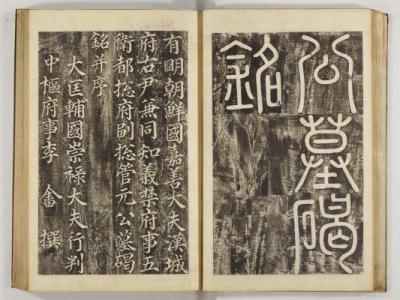 公墓碣
銘
有明朝鮮國嘉善大夫漢城
府右尹兼同知義禁府事五
衛都捴府副捴管元公墓碣
銘并序
大匡輔國崇禄大夫行判
中樞府事李 畬 撰